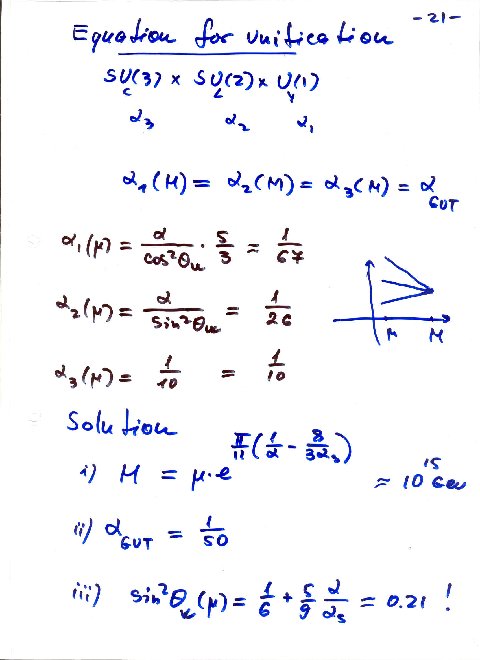 -21-
Equation for unification
SU(3) × SU(2) × U(1)
c L Y
α₃ α₂ α₁
α₁(M) = α₂(M) = α₃(M) = α_GUT
α₁(μ) = α/cos²θ_w · 5/3 = 1/67
α₂(μ) = α/sin²θ_w = 1/26
α₃(μ) = 1/10 = 1/10
μ M
Solution
i) M = μ·e^{π/11(1/α - 8/3α₃)} ≈ 10^15 GeV
ii) α_GUT = 1/50
iii) sin²θ_w(μ) = 1/6 + 5/9 α/α_s = 0.21 !